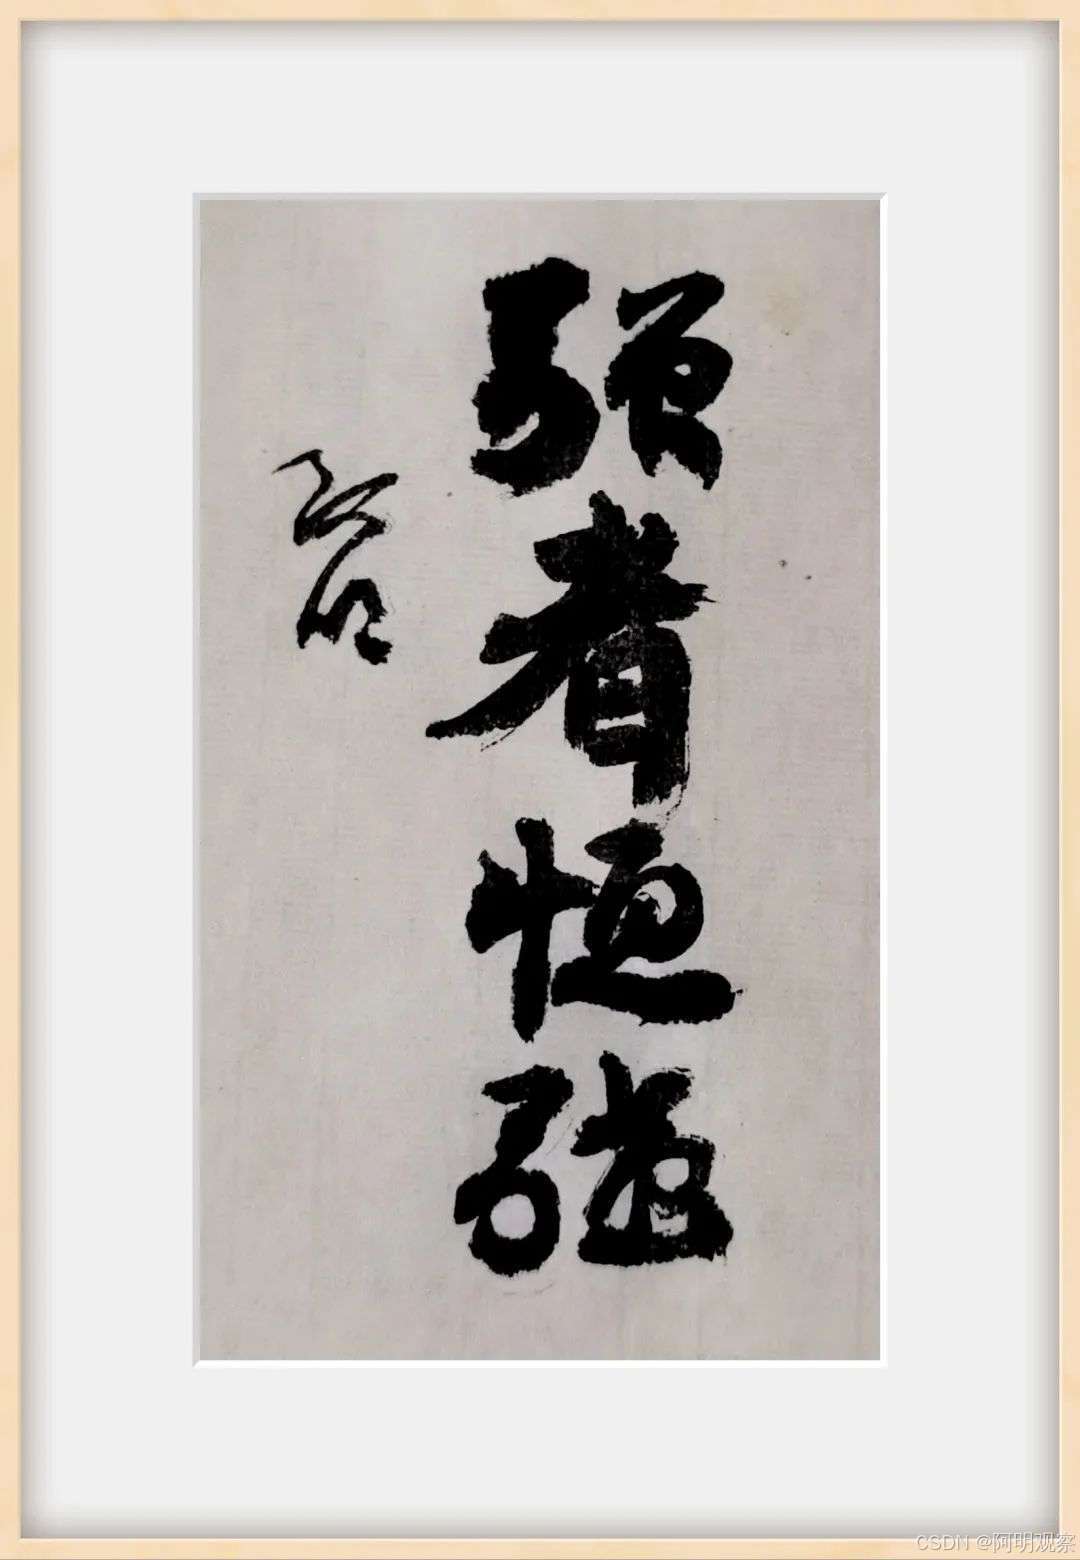 强者恒强
CSDN @阿明观察